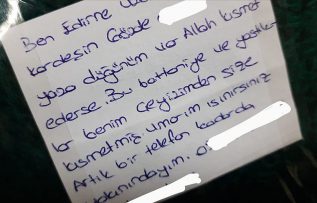 Ben Edirne
kardeşin Gözde
yaza düğünüm var Allah kısmet
ederse. Bu battaniye ve yastıklar
lar benim çeyizimden size
kısmetmiş umarım ısınırsınız
Artık bir telefon kadarda
yakınındayım.